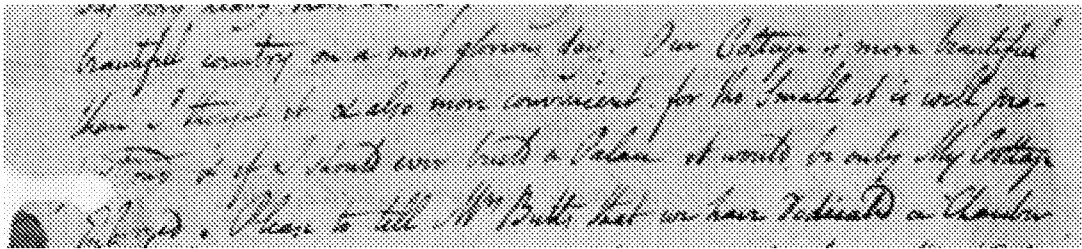 beautiful country on a most glorious day. Our Cottage is more beautiful
than I thought it & also more convenient. for tho Small it is well pro-
-portiond & if I should ever build a Palace it would be only My Cottage
Enlarged. Please to tell Mrs Butts that we have dedicated a Chamber